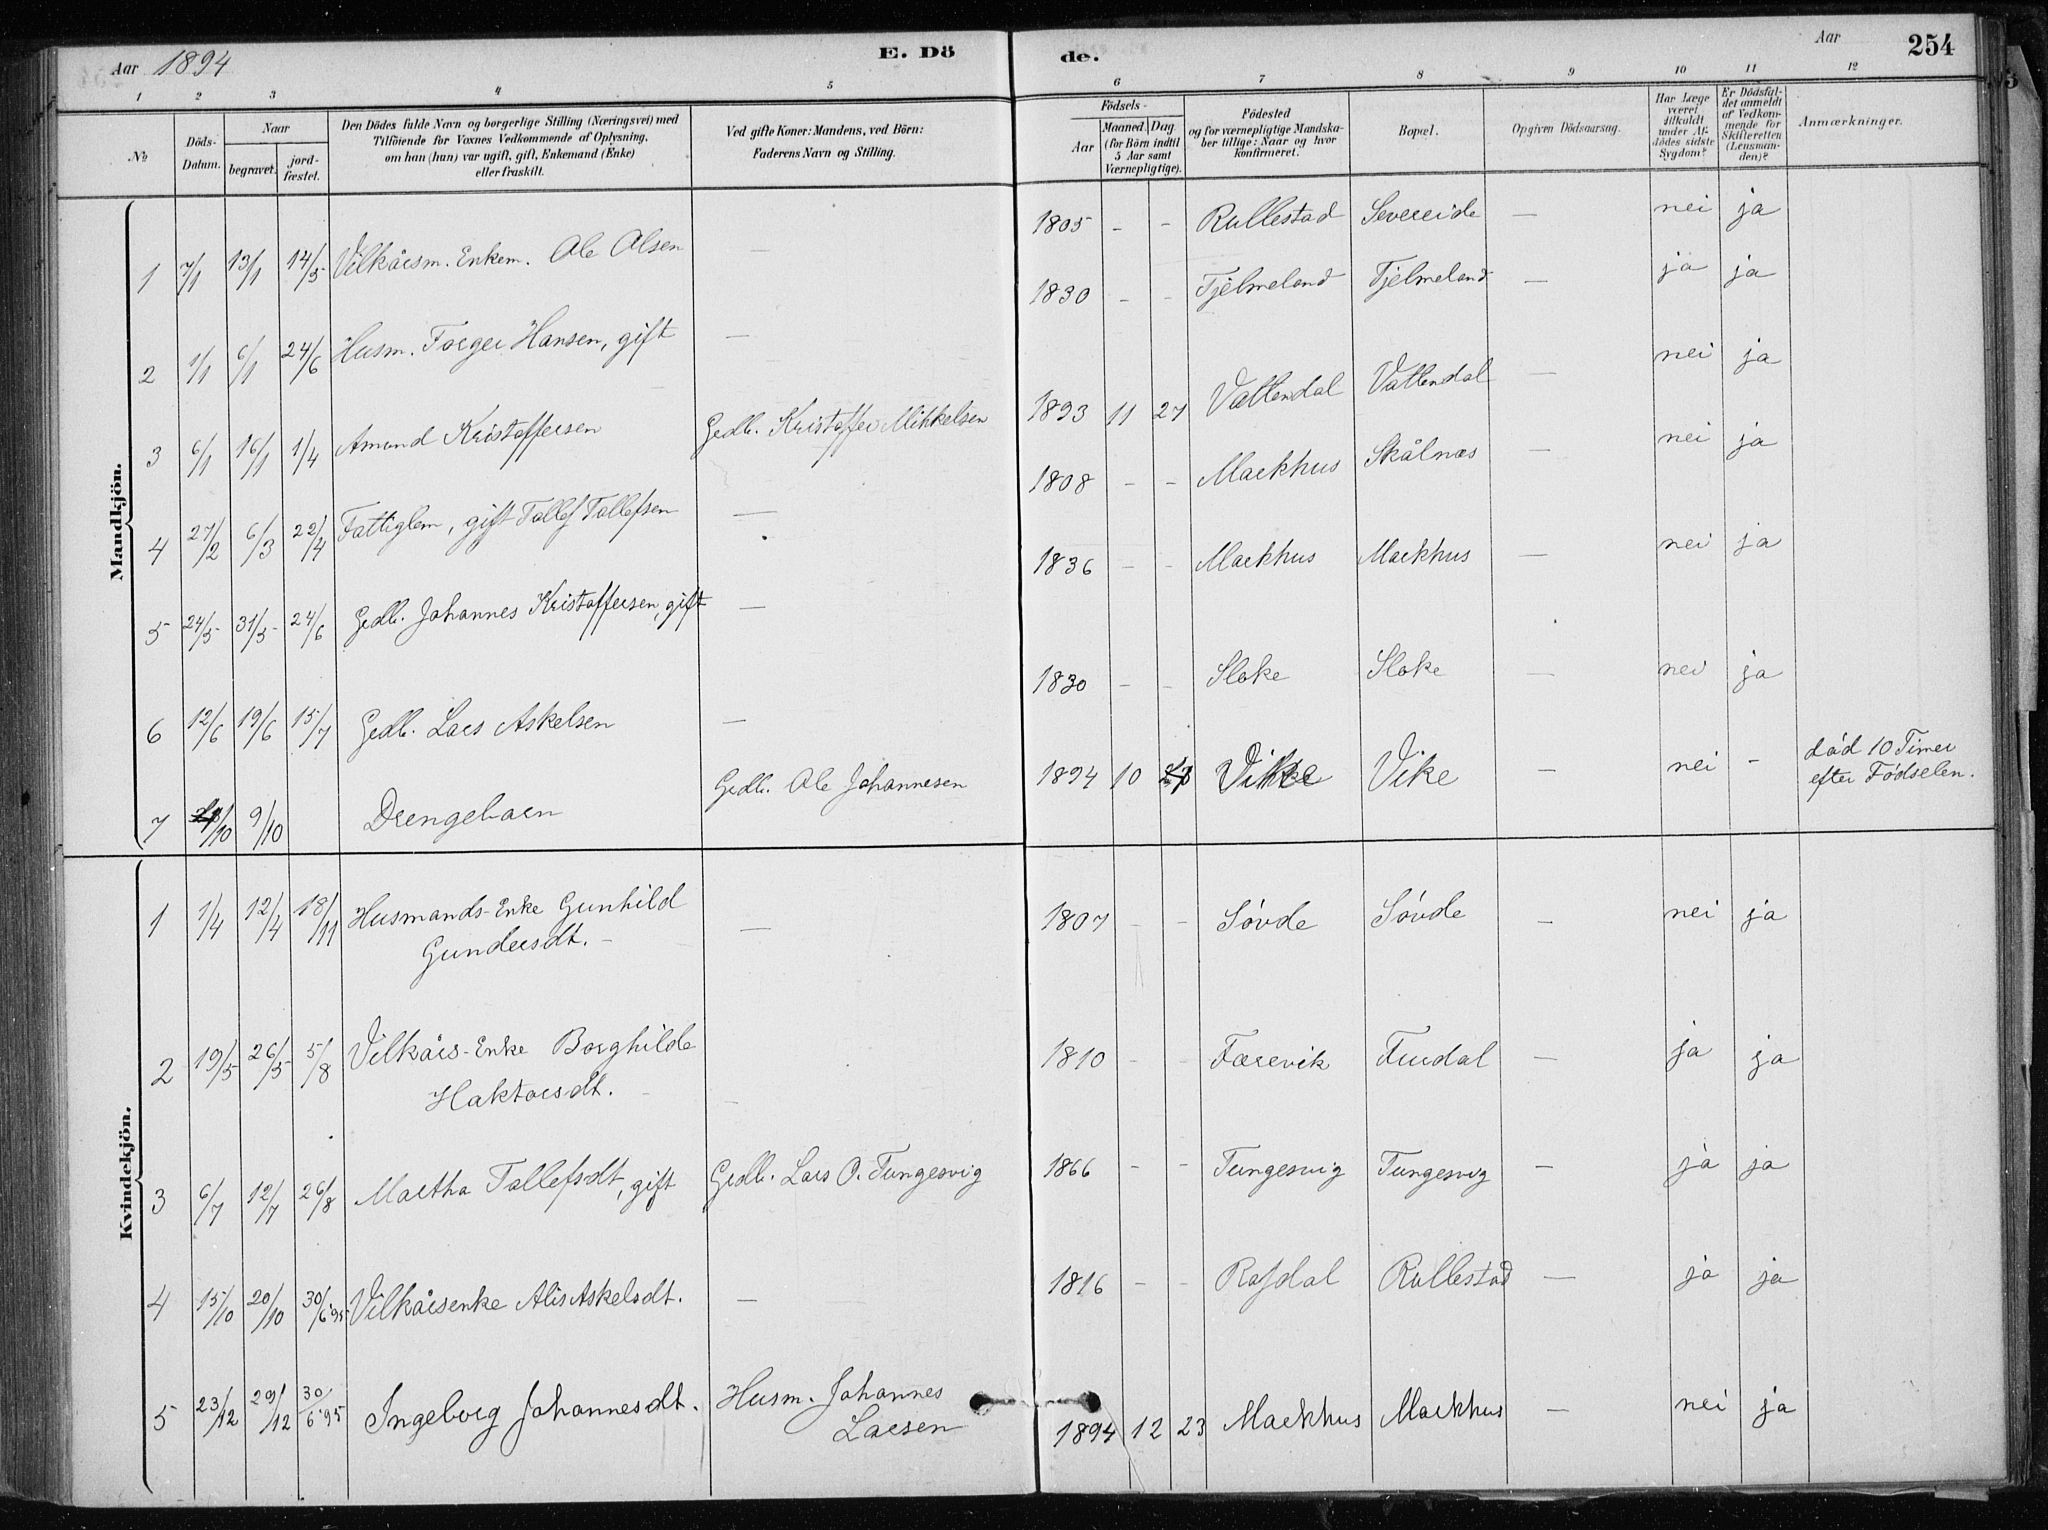 Aar 1894 E. Dö
de. Aar 254
1 2 3 4 5
6 7 8 9 10 11 12
№ Döds-Datum. Naar begravet. jord-fæstet.
Den Dödes fulde Navn og borgerlige Stilling (Næringsvei) med
Tilföiende for Voxnes Vedkommende af Oplysning,
om han (hun) var ugift, gift, Enkemand (Enke)
eller fraskilt.
Ved gifte Koner: Mandens, ved Börn:
Faderens Navn og Stilling.
Födsels-
Aar Maaned. Dag.
(for Börn indtil
5 Aar samt
Værnepligtige).
Födested
og for værnepligtige Mandska-
ber tillige: Naar og hvor
konfirmeret.
Bopæl.
Opgiven Dödsaarsag.
Har Læge
været
tilkaldt
under Af-
dödes sidste
Sygdom?
Er Dödsfal-
det anmeldt
af Vedkom-
mende for
Skifteretten
(Lensman-
den)?
Anmærkninger.
Mandkjön.
1 7/1 13/1 14/5 Vilkårsm. Enkem. Ole Olsen — 1805 - - Rullestad Severeide — nei ja
2 1/1 6/1 24/6 Husm. Torger Hansen, gift — 1830 - - Tjelmeland Tjelmeland — ja ja
3 6/1 16/1 1/4 Amund Kristoffersen Grdb. Kristoffer Mikkelsen 1893 11 27 Vattendal Vattendal — nei ja
4 27/2 6/3 22/4 Fattiglem, gift Tollef Tollefsen — 1808 - - Markhus Skålnæs — nei ja
5 24/5 31/5 24/6 Grdb. Johannes Kristoffersen, gift — 1836 - - Markhus Markhus — nei ja
6 12/6 19/6 15/7 Grdb. Lars Askelsen — 1830 - - Sloke Sloke — nei ja
7 /10 9/10 Drengebarn Grdb. Ole Johannesen 1894 10 Vikke Vike — nei - död 10 Timer
efter Födselen.
Kvindekjön.
1 1/4 12/4 18/11 Husmands-Enke Gunhild
Gundersdt. — 1807 - - Søvde Søvde — nei ja
2 19/5 26/5 5/8 Vilkårs-Enke Borghilde
Haktorsdt. — 1810 - - Færevik Furdal — ja ja
3 6/7 12/7 26/8 Martha Tollefsdt, gift Grdb. Lars O. Tungesvig 1866 - - Tungesvig Tungesvig — ja ja
4 15/10 20/10 30/6 95 Vilkårsenke Alis Askelsdt. — 1816 - - Rafdal Rullestad — ja ja
5 23/12 29/12 30/6 95 Ingeborg Johannesdt. Husm. Johannes
Larsen 1894 12 23 Markhus Markhus — nei ja